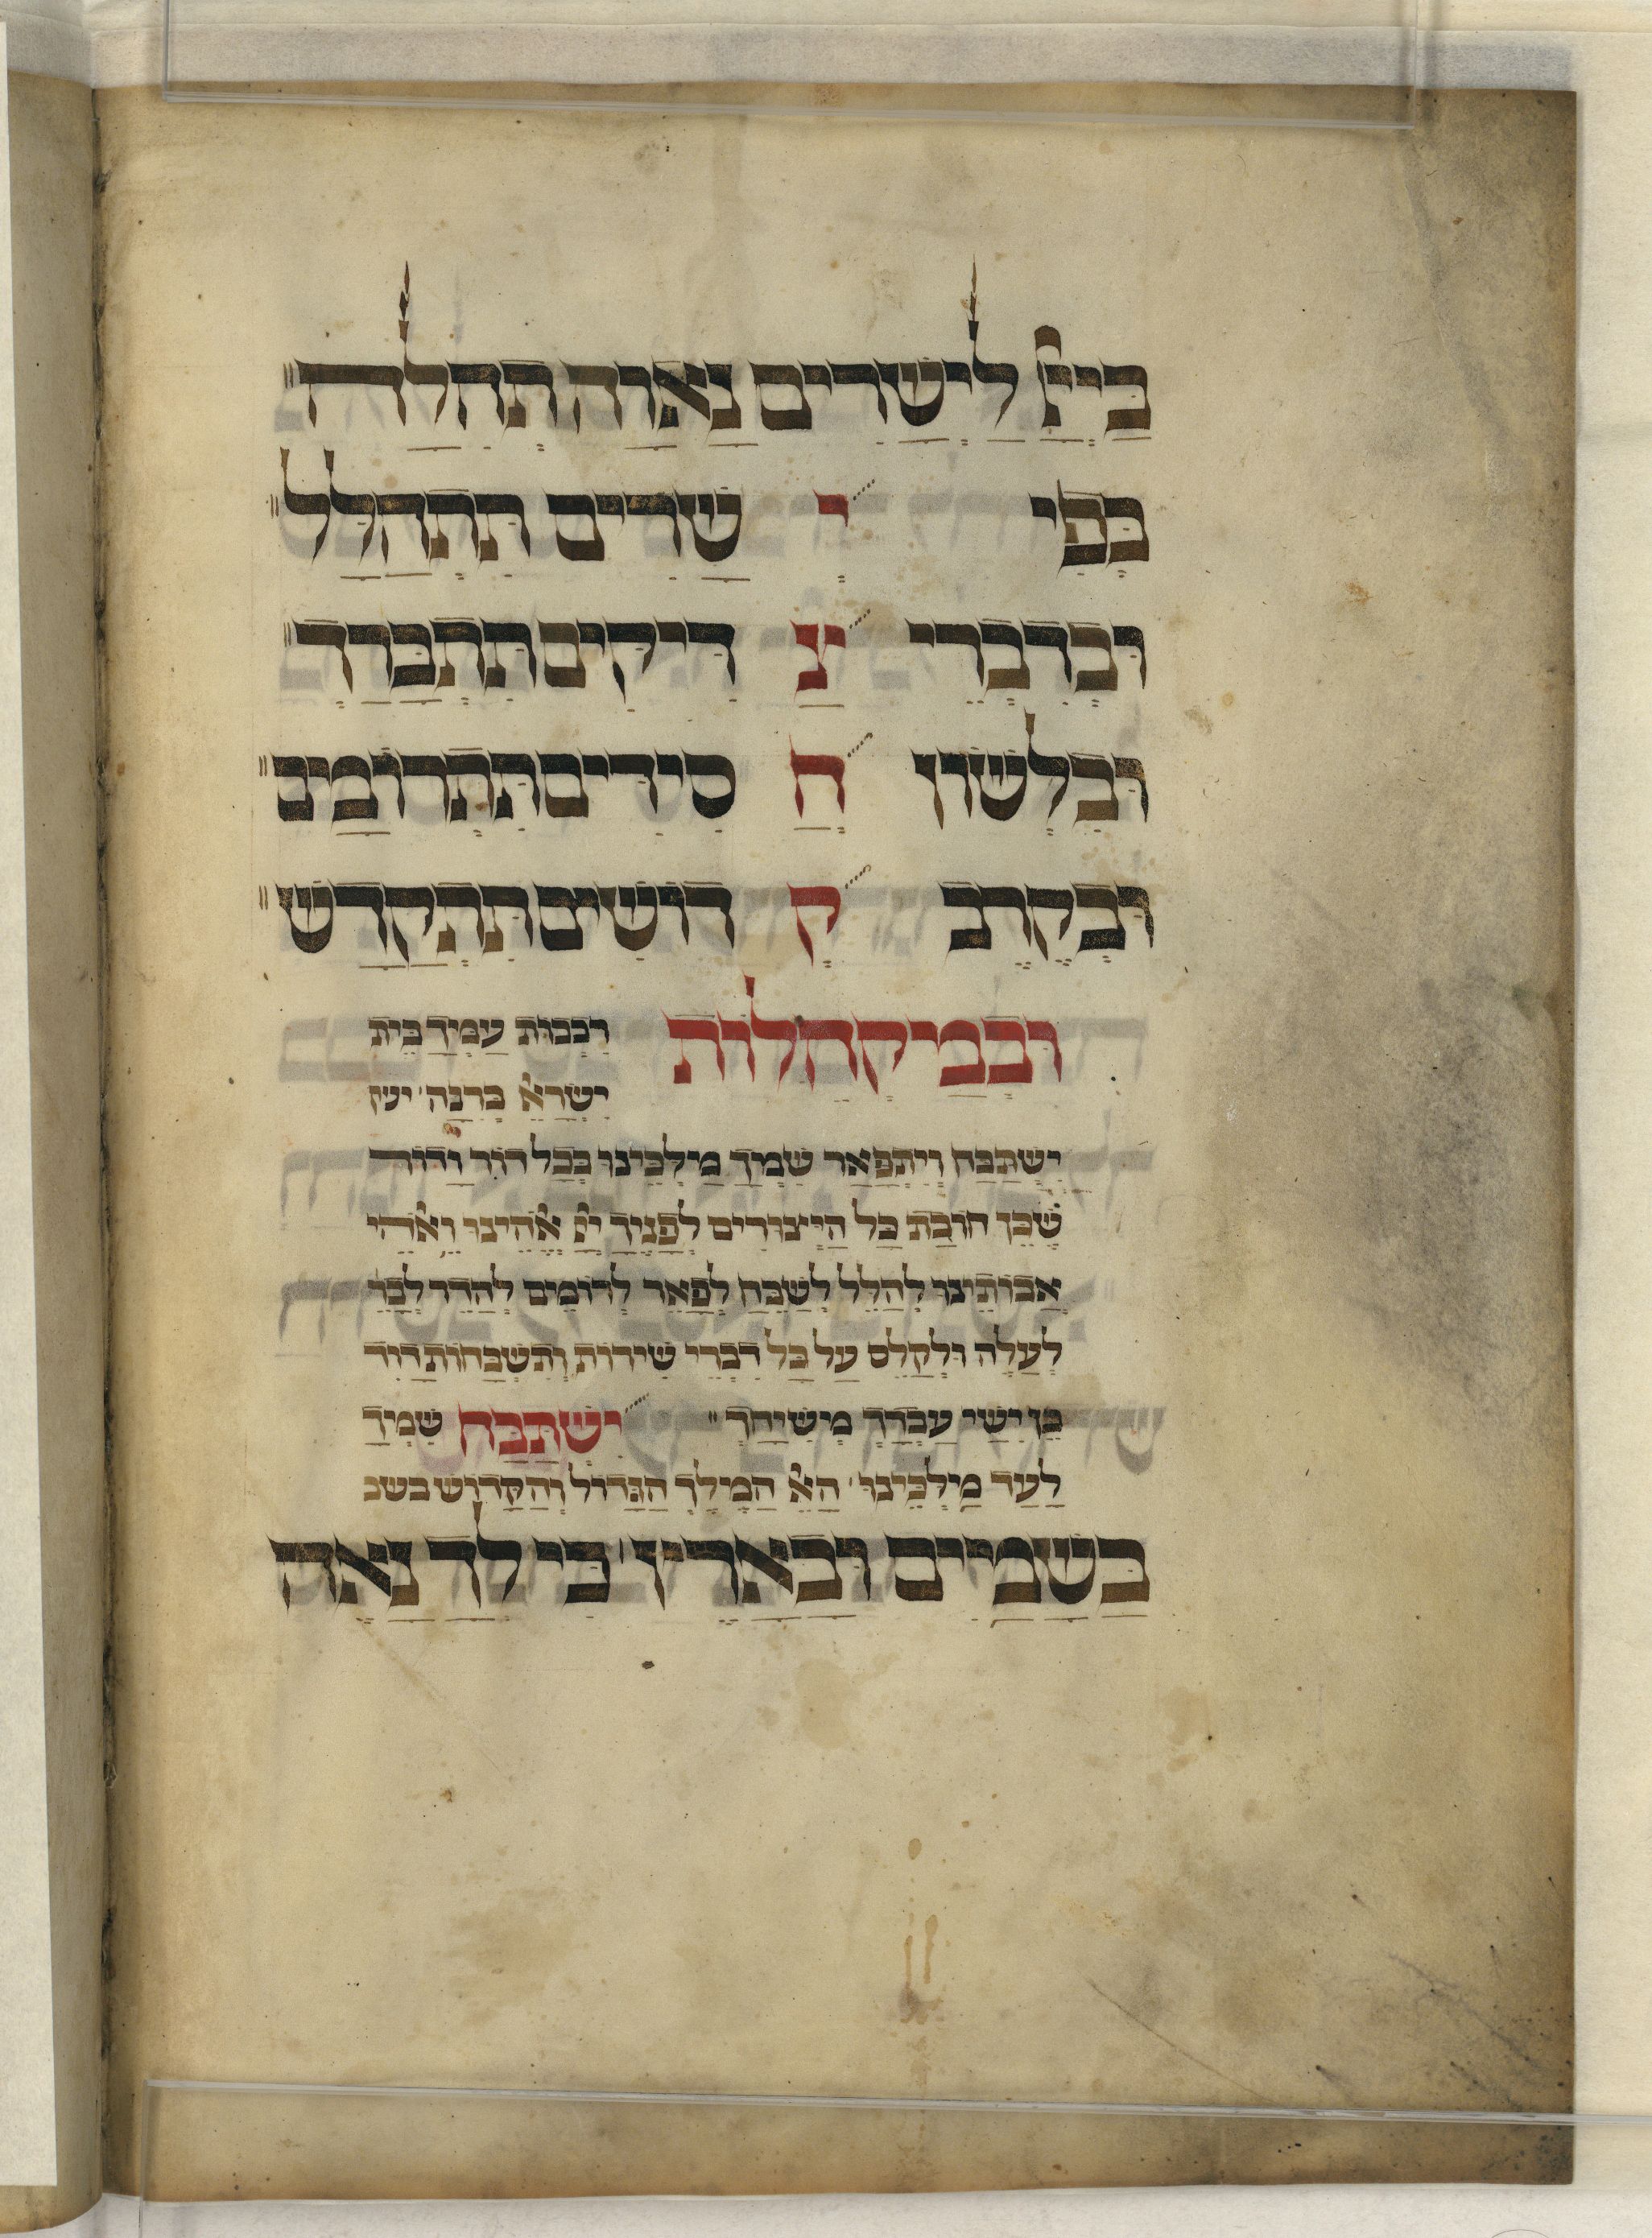 בַּיְיָ לַיְשָׁרִים נַאֲוָה תְהִלָּה׃
בְּפִי יְ שָׁרִים תִּתְהַלָּל׃
וּבְדִבְרֵי צַ דִּיקִים תִּתְבָּרַךְ׃
וּבִלְשׁוֹן חֲ סִידִים תִּתְרוֹמָם׃
וּבְקֶרֶב קְ דוֹשִׁים תִּתְקַדָּשׁ׃
וּבְמַקְהֲלוֹת רִבְבוֹת עַמְּךָ בֵּית
יִשְׂרָאֵ בְּרִנָּה׳ יש
יִשְׁתַּבַּח וְיִתְפָּאַר שִׁמְךָ מַלְכֵּינוּ בְּכָל דּוֹר וָדוֹר
שֶׁכֵּן חוֹבַת כָּל הַיְצוּרִים לְפָנֶיךָ יְיָ אֱלֹהֵינוּ וֵאלֹהֵי
אֲבוֹתֵינוּ לְהַלֵּל לְשַׁבֵּחַ לְפָאֵר לְרוֹמֵם לְהַדֵּר לְבָרֵ
לְעַלֵּה וּלְקַלֵּס עַל כָּל דִּבְרֵי שִׁירוֹת וְתִשְׁבָּחוֹת דָּוִד
בֶּן יִשַׁי עַבְדְּךָ מְשִׁיחֶךָ׃ יִשְׁתַּבַּח שִׁמְךָ
לָעַד מַלְכֵּינוּ׳ הָאֵ הַמֶּלֶךְ הַגָּדוֹל וְהַקָּדוֹשׁ בשמ
בַּשָּׁמַיִם וּבָאָרֶץ׳ כִּי לְךָ נָאֶה